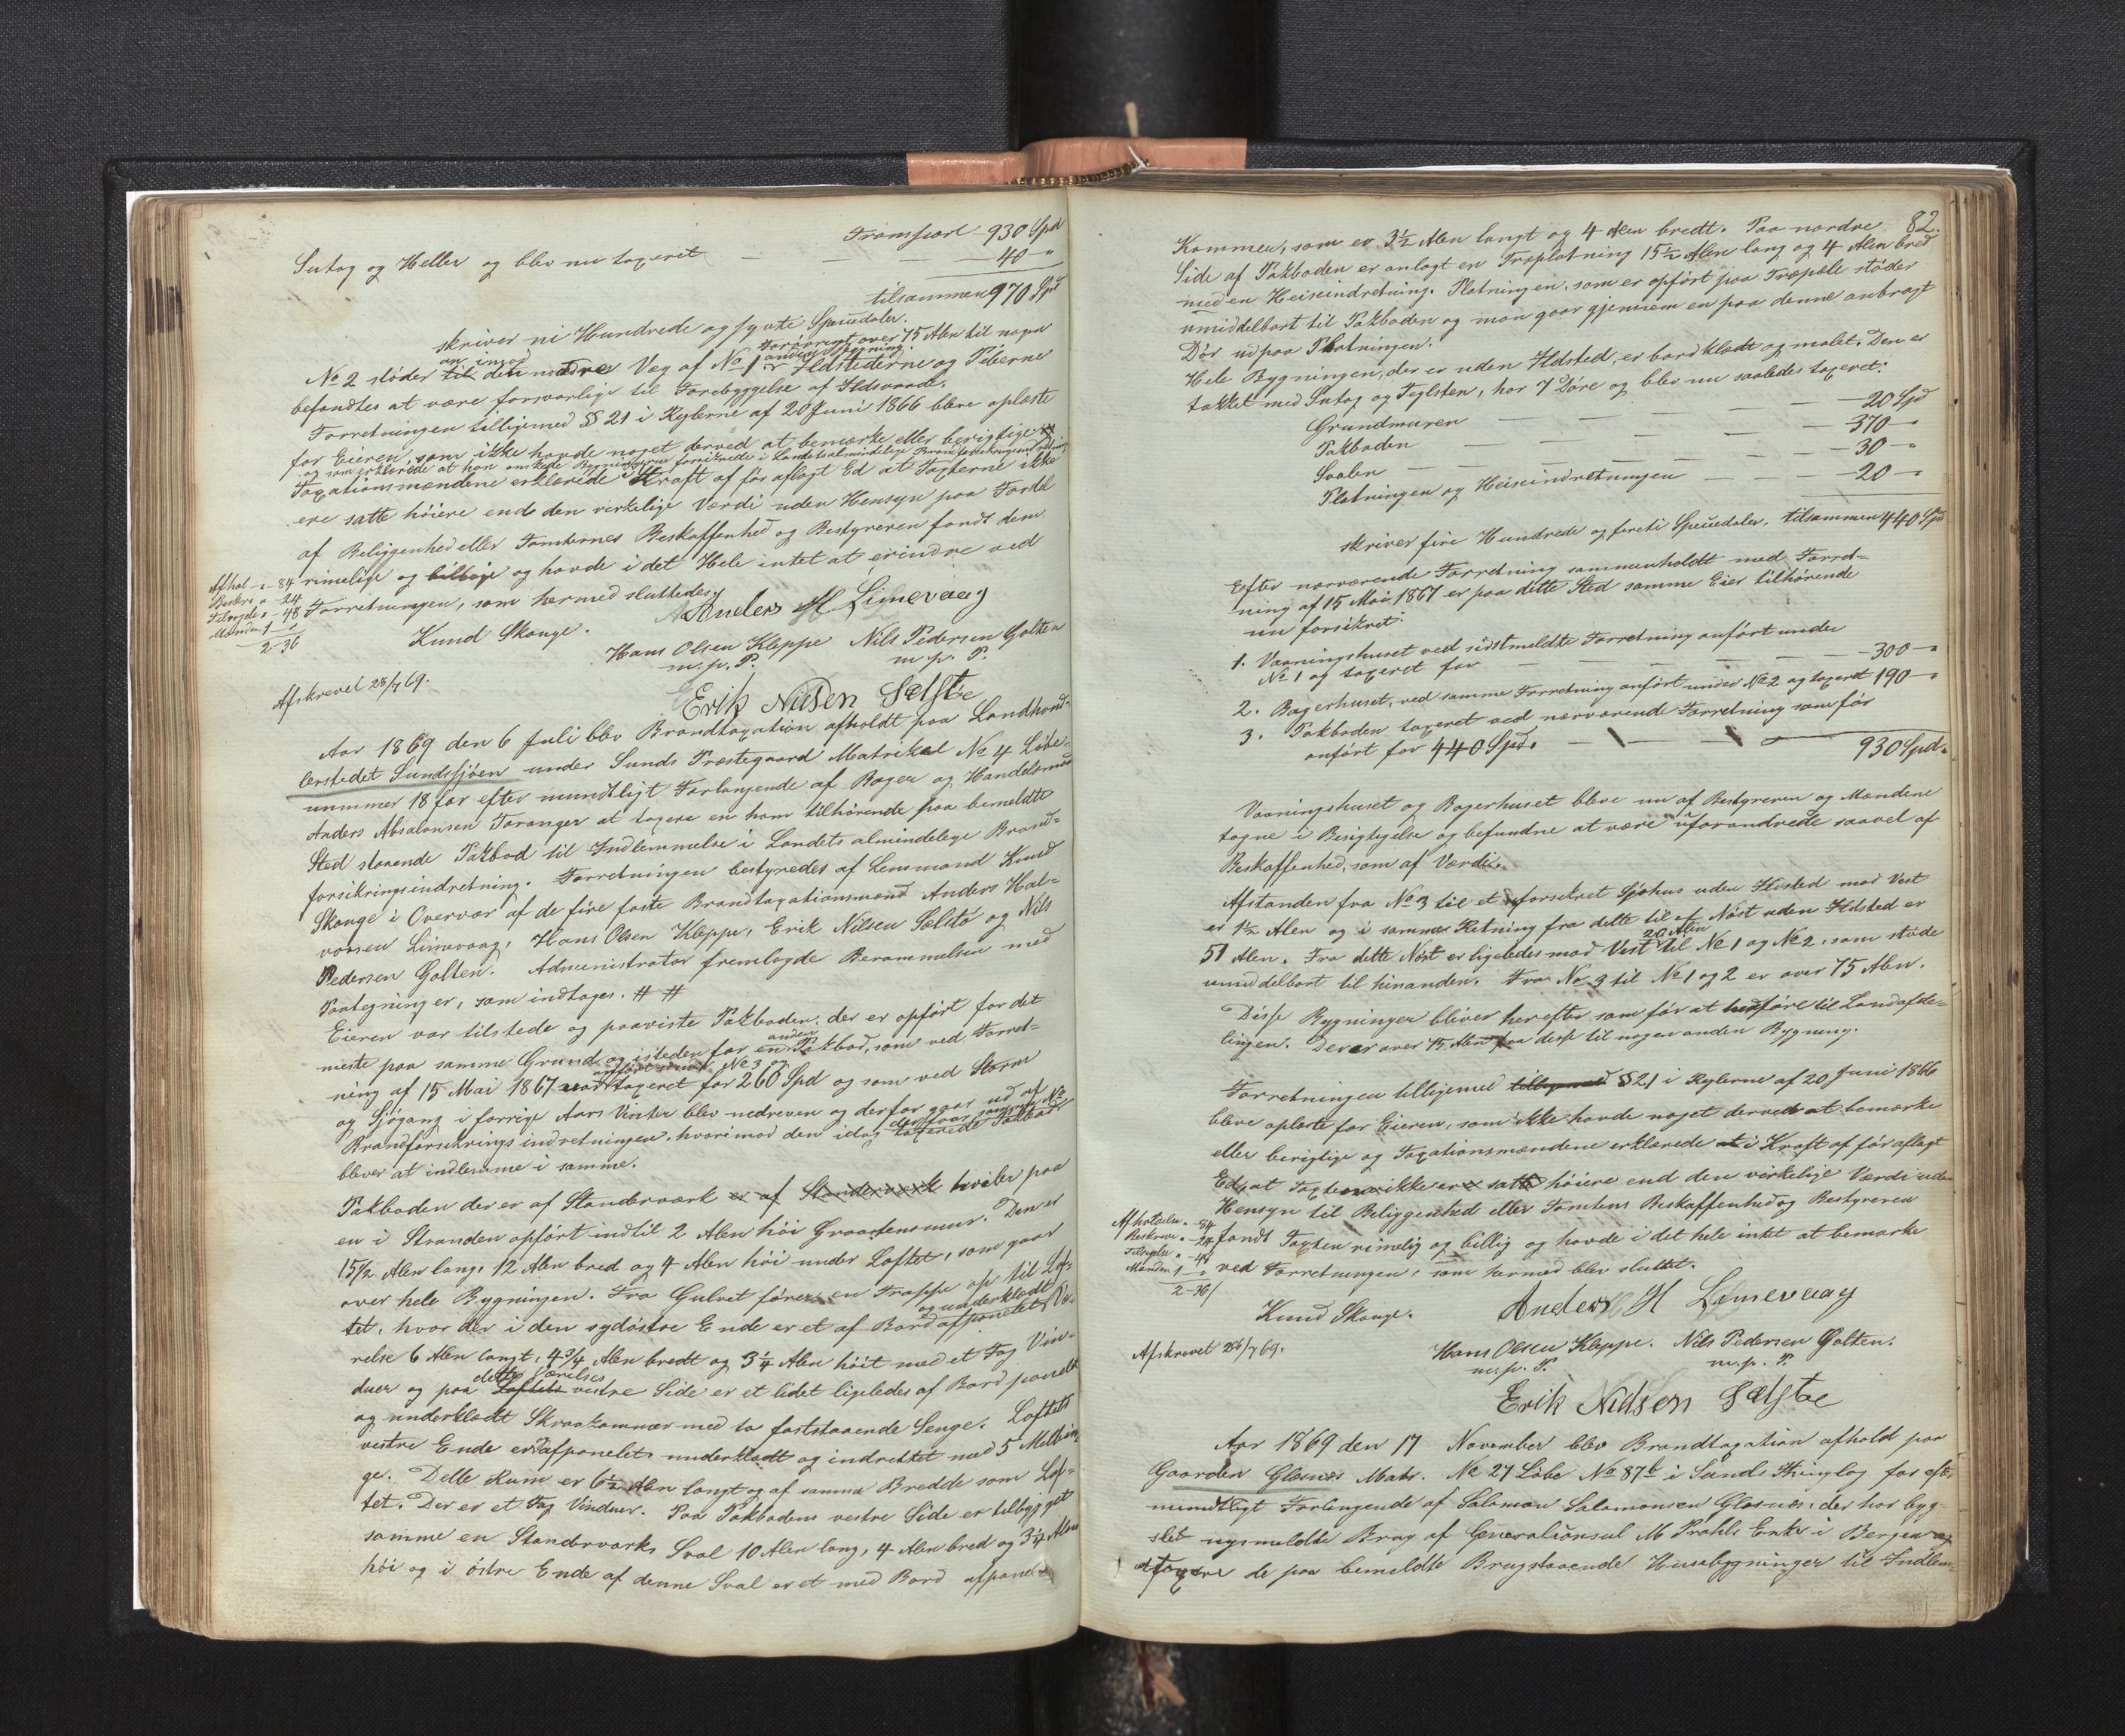 Transport 930 Spd
Sutag og Heller og blev nu taxeret — — — 40 "
tilsammen 970 Spd
skriver ni Hundrede og syvti Speciedaler.
Forøvrigt over 75 Alen til nogen
anden Bygning.
No 2 støder til den nordre Væg af No 1. Ildstederne og Piberne
befandtes at være forsvarlige til Forebyggelse af Ildsvaade.
Forretningen tilligemed §§ 21 i Reglerne af 20 Juni 1866 bleve oplæste
for Eieren, som ikke havde noget derved at bemærke eller berigtige
og som erklærede at han ønskede Bygningerne forsikrede i Landets almindelige Brandforsikringsindretning
Taxationsmændene erklærede i Kraft af før aflagt Ed at Taxterne ikke
ere satte høiere end den virkelige Værdi uden Hensyn paa Fordel
af Beliggenhed eller Tomternes Beskaffenhed og Bestyreren fandt dem
rimelige og billige og havde i det Hele intet at erindre ved
Forretningen, som hermed sluttedes.
Afhol " - 84
Beskr. " 24
Tilsyele " - 48
Mænden 1 - "
2-36
Anders H Limevaag
Knud Skauge.
Hans Olsen Kleppe Nils Pedersen Golten
m. p. P. m. p. P.
Erik Nielsen Sælste
Afskrevet 28/7 69.
Aar 1869 den 6 Juli blev Brandtaxation afholdt paa Landhand-
lerstedet Sundssjøen under Sunds Præstegaard Matrikel No 4 Løbe-
nummer 18 for efter mundtligt Forlangende af Bager og Handelsmand
Anders Absalonsen Taranger at taxere en ham tilhørende paa bemeldte
Sted staaende Pakbod til Indlemmelse i Landets almindelige Brand-
forsikringsindretning. Forretningen bestyredes af Lensmand Knud
Skauge i Overvær af de fire faste Brandtaxationsmænd Anders Hal-
vorsen Limevaag, Hans Olsen Kleppe, Erik Nilsen Sælstø og Nils
Pedersen Golten. Administrator fremlagde Berammelsen med
Paategninger, som indtages. # #
Eieren var tilstede og paaviste Pakboden, der er opført for det
meste paa samme Grund og isteden for en anden Pakbod, som ved Forret-
anført under No 3 og
ning af 15 Mai 1867 var taxeret for 260 Spd og som ved Storm
og Søgang i forrige Aars Vinter blev nedreven og derfor gaar ud af
Brandforsikringsindretningen, hvorimod den idag taxerede Pakbod
bliver at indlemme i samme.
Pakboden der er af Standerværk er af Standerværk hviler paa
en i Stranden opført indtil 2 Alen høi Graastensmur. Den er
15 1/2 Alen lang, 12 Alen bred og 4 Alen høi under Loftet, som gaar
over hele Bygningen. Fra Gulvet fører en Trappe op til Lof-
tet, hvor der i den sydøstre Ende er et af Bord afpanelet og underklædt Væ-
relse 6 Alen langt, 4 3/4 Alen bredt og 3 1/4 Alen høit med et Fag Vin-
duer og paa Loftets dette Værelses vestre Side er et lidet ligeledes af Bord panelet
og underklædt Skraakammer med to faststaaende Senge. Loftets
vestre Ende er afpanelet, underklædt og indrettet med 5 Melbin-
ge. Dette Rum er 6 1/2 Alen langt og af samme Bredde som Lof-
tet. Der er et Fag Vinduer. Paa Pakbodens vestre Side er tilbygget
samme en Standerværks Sval 10 Alen lang, 4 Alen bred og 3 1/4 Alen
høi og i østre Ende af denne Sval er et med Bord afpanelet
82.
Kammer, som er 3 1/2 Alen langt og 4 Alen bredt. Paa nordre
Side af Pakboden er anlagt en Træplatning 15 1/2 Alen lang og 4 Alen bred
med en Heiseindretning. Platningen, som er opført paa Træpæle støder
umiddelbart til Pakboden og man gaar gjennem en paa denne anbragt
Dør ud paa Platningen.
Hele Bygningen, der er uden Ildsted, er bordklædt og malet. Den er
tækket med Sutag og Teglsten, har 7 Døre og blev nu saaledes taxeret:
Grundmuren — — — 20 Spd
Pakboden — — — 370 — "
Svalen — — — 30 — "
Platningen og Heiseindretningen — — 20 — "
tilsammen 440 Spd
skriver fire Hundrede og fireti Speciedaler.
Efter nærværende Forretning sammenholdt med Forret-
ning af 15 Mai 1867 er paa dette Sted samme Eier tilhørende
nu forsikret:
1. Vaaningshuset ved sidstmeldte Forretning anført under
No 1 og taxeret for — — — 300 — "
2. Bagerhuset, ved samme Forretning anført under No 2 og taxeret 190 — "
3. Pakboden taxeret ved nærværende Forretning som før
anført for 440 Spd. — — —
930 Spd.
Vaaningshuset og Bagerhuset bleve nu af Bestyreren og Mændene
tagne i Besigtigelse og befundne at være uforandrede saavel af
Beskaffenhed, som af Værdi.
Afstanden fra No 3 til et uforsikret Sjøhus uden Ildsted mod Vest
er 1 1/2 Alen og i samme Retning fra dette til et Nøst uden Ildsted er
51 Alen. Fra dette Nøst er ligeledes mod Vest 20 Alen til No 1 og No 2, som støde
umiddelbart til hinanden. Fra No 3 til No 1 og 2 er over 75 Alen.
Disse Bygninger bliver herefter som før at henføre til Landafde-
lingen. Der er over 75 Alen fra disse til nogen anden Bygning.
Forretningen tilligemed tilligemed § 21 i Reglerne af 20 Juni 1866
bleve oplæste for Eieren, som ikke havde noget derved at bemærke
eller berigtige og Taxationsmændene erklærede at i Kraft af før aflagt
Ed, at Taxten ikke er satte høiere end den virkelige Værdi uden
Hensyn til Beliggenhed eller Tomtens Beskaffenhed og Bestyreren
fandt Taxten rimelig og billig og havde i det hele intet at bemærke
ved Forretningen, som hermed blev sluttet.
Afholdelse " - 84
Beskriv " - 24
Tilsyele " - 48
Mænden 1 - "
2-36
Knud Skauge. Anders H Limevaag
Hans Olsen Kleppe. Nils Pedersen Golten.
m. p. P. m. p. P.
Erik Nielsen Sælste
Afskrevet 28/7 69.
Aar 1869 den 17 November blev Brandtaxation afhold paa
Gaarden Glesnæs Matr. No 27 Løbe No 87b i Sunds Thinglag for efter
mundtligt Forlangende af Salamon Salamonsen Glesnæs, der har byg-
slet nysmeldte Brug af Generalconsul M Prahls Enke i Bergen
at taxere de paa bemeldte Brug staaende Husebygninger til Indlem-